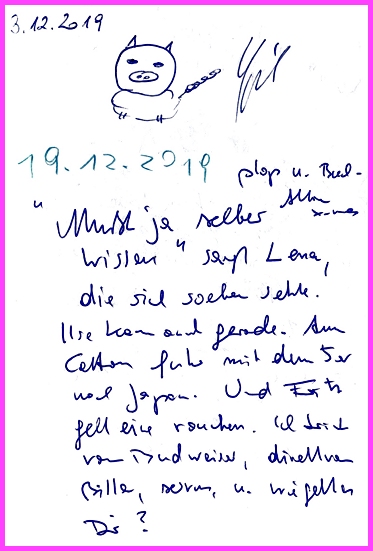 3.12.2019
19.12.2019 plop u. Bud-
"Mußt ja selber
wissen" sagt Lena,
die sich soeben setzte.
Ilse kam auch gerade. Am
fuhr mit dem 5er
nach Japan. Und
geht eine rauchen. Ich
vom Budweiser, direkt von
Billa, servus, u. wie geht es
Dir?